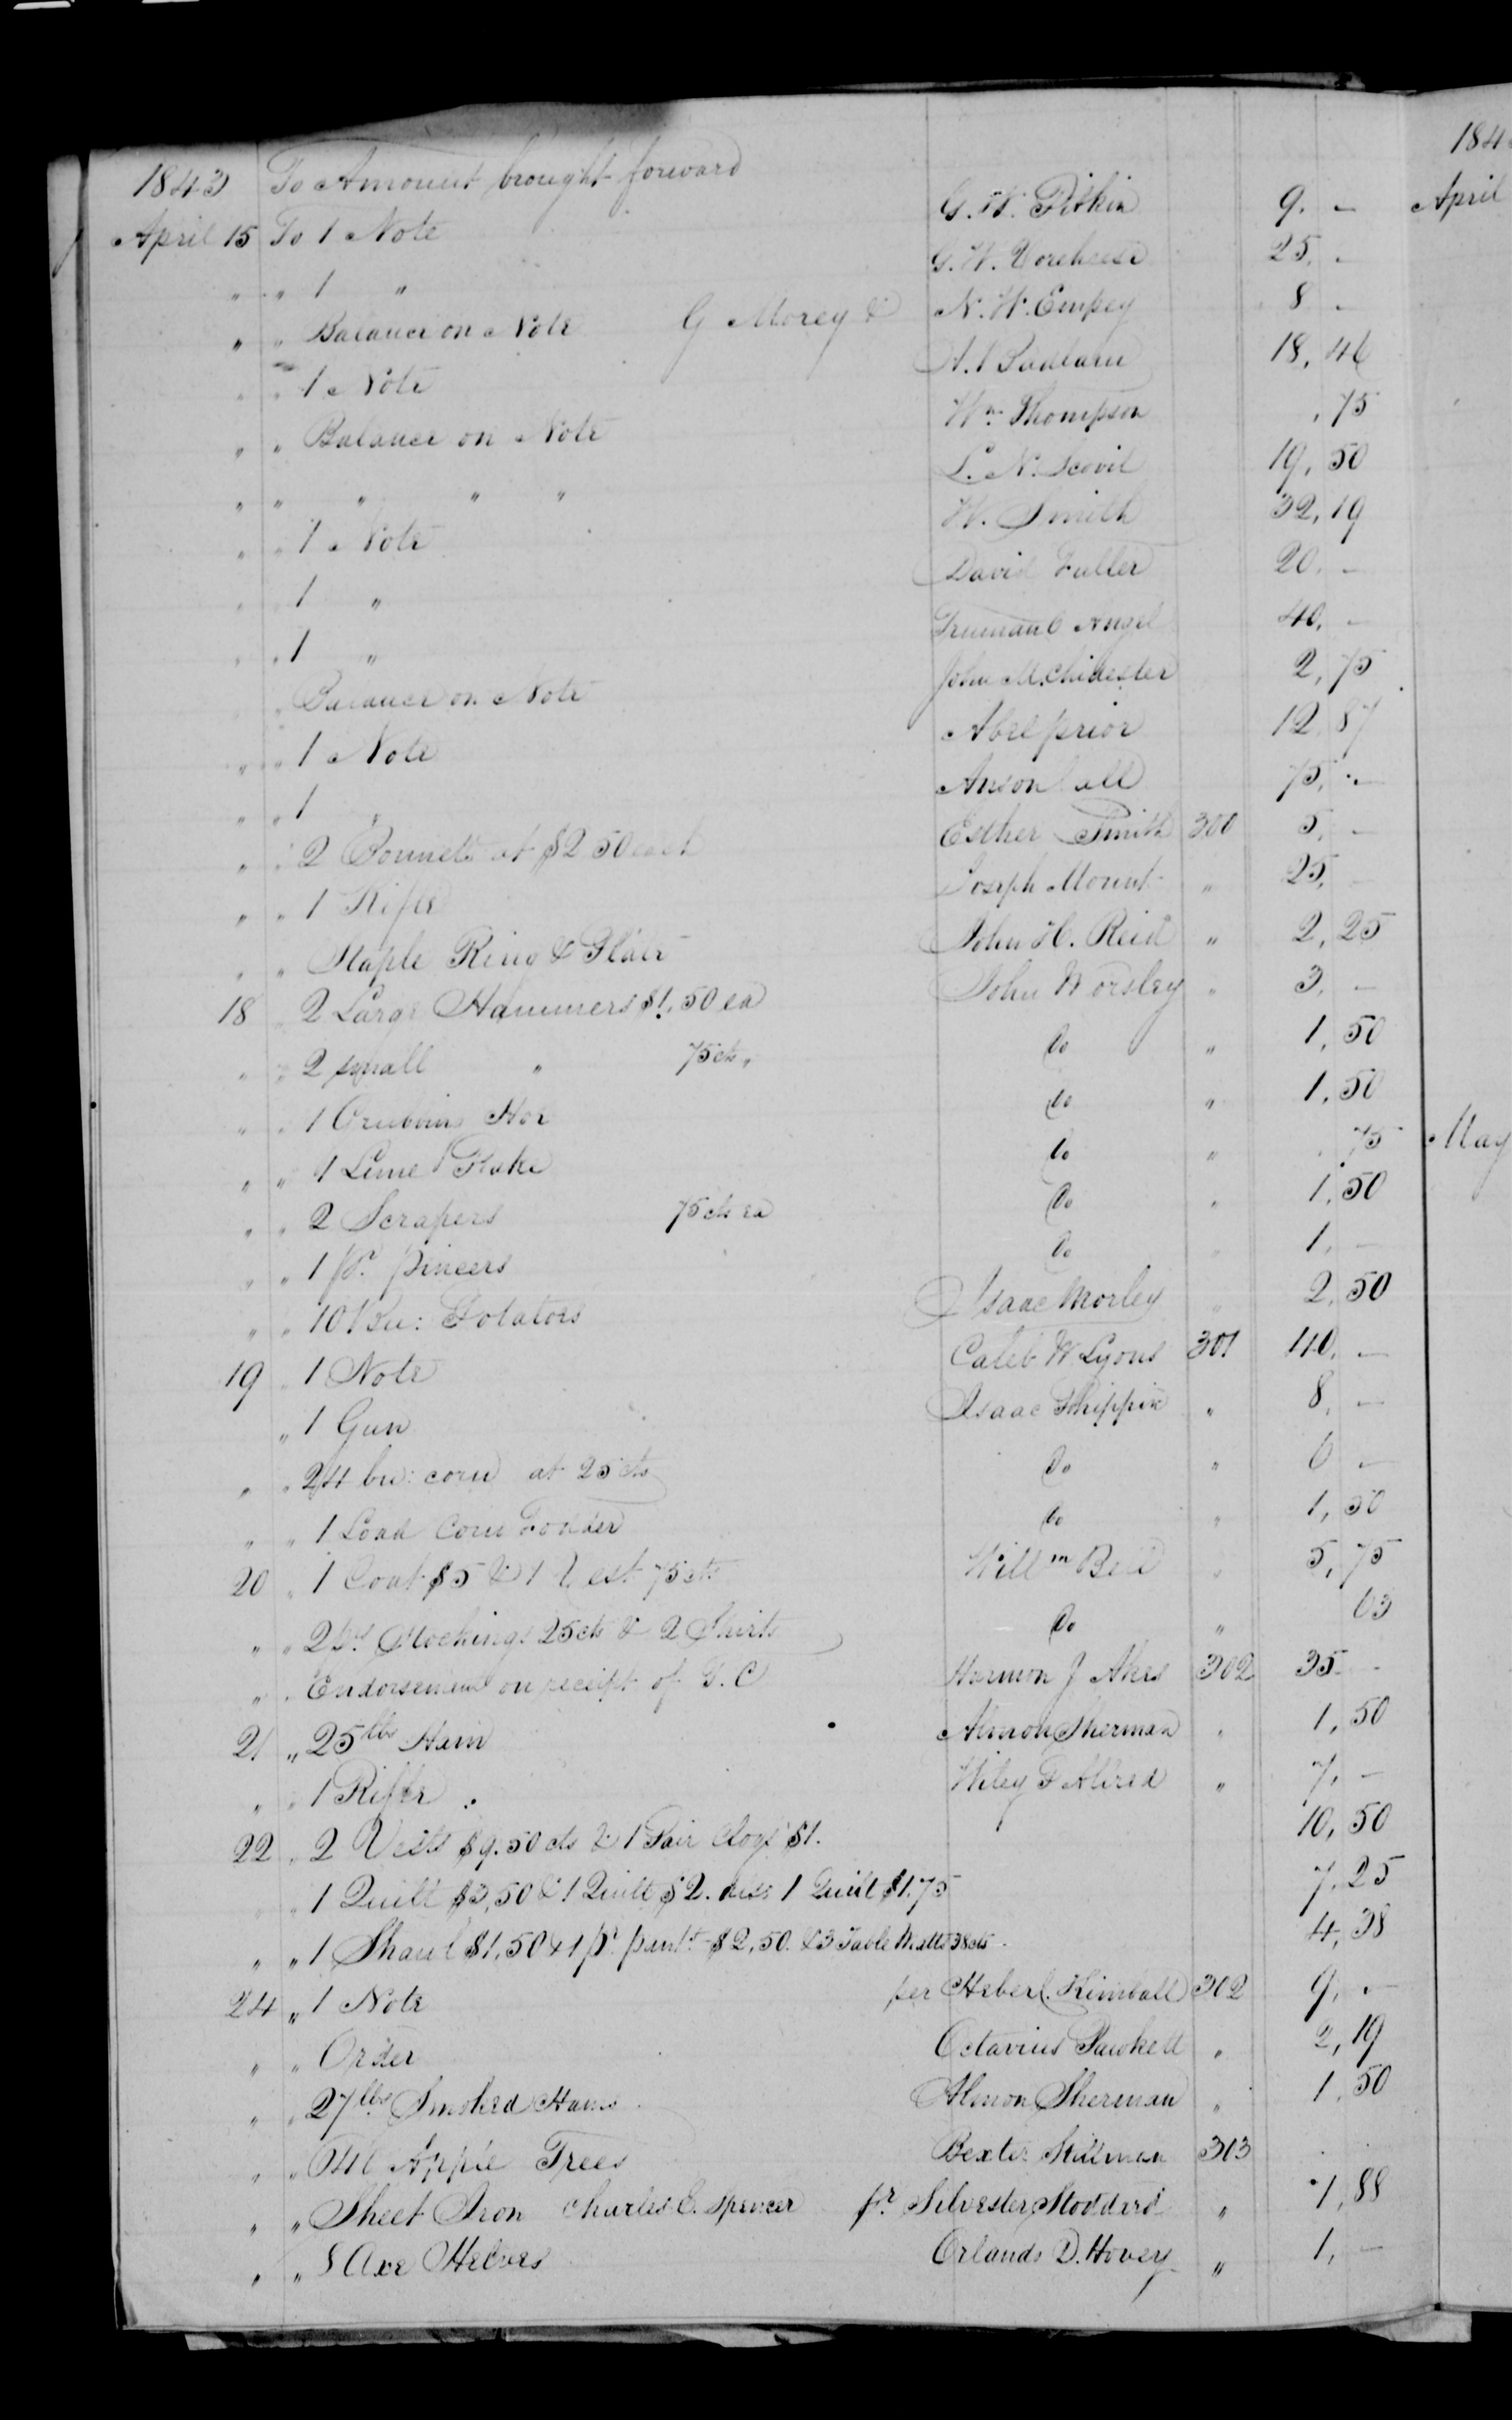 1843 To Amount brought forward
April 15 To 1 Note G. W. Pitkin 9. –
" " 1 " G. W. 25. –
" " Balance on Note G Morey & N. W. Empey 8 –
" " 1 Note 18, 46
" " Balance on Note Wm. Thompson , 75
" " " " " L. N. Scovil 19, 50
" " 1 Note W. Smith 32, 19
" " 1 " David Fuller 20. –
" " 1 " Truman O Angel 40, –
" Balance on Note John M. Chidester 2, 75
" " 1 Note Abel prior 12, 87
" " 1 " Anson Call 75, –
" " 2 Bonnets at $2 50 each Esther Smith 300 5, –
" " 1 Rifle Joseph Mount " 25, –
" " Staple Ring & John H. Reid " 2, 25
18 " 2 Large Hammers $1,50 ea John Worsley " 3, –
" " 2 small " 75 cts " Do " 1, 50
" " 1 Grubbing Hoe Do " 1, 50
" " 1 Lime Rake Do " , 75
" " 2 Scrapers 75 cts ea Do " 1, 50
" " 1 pr. pincers Do " 1, –
" " 10 Bu: Potatoes Isaac Morley " 2, 50
19 " 1 Note Caleb W Lyons 301 40, –
" 1 Gun Isaac " 8, –
" " 24 bu: corn at 25 cts Do " 6 –
" " 1 Load Corn Fodder Do " 1, 50
20 " 1 Coat $5 & 1 Vest 75 cts Willm Bell " 5, 75
" " 2 pr Stockings 25 cts & 2 Shirts Do " 63
" " Endorsement on receipt of T. C Harmon J Akes 302 35 –
21 " 25 lbs Ham Almon Sherman " 1, 50
" " 1 Rifle Wiley P Allred " 7, –
22 " 2 Vests $9.50 cts & 1 Pair Clogs $1. 10, 50
" 1 Quilt $3,50 & 1 Quilt $2. 1 Quilt $1.75 7, 25
" " 1 Shawl $1,50 & 1 pr pants $2,50. & 3 Table Matts 38 cts 4, 38
24 " 1 Note per Heber C. Kimball 302 9, –
" " Order Octavius " 2, 19
" " 27 lbs Smoked Hams Almon Sherman " 1, 50
" " Apple Trees Bexter Stillman 303
" " Sheet Iron Charles C. Spencer pr Silvester Stoddard " 1, 88
" " 8 Axe Helves Orlando D. Hovey " 1, –
184
April
May